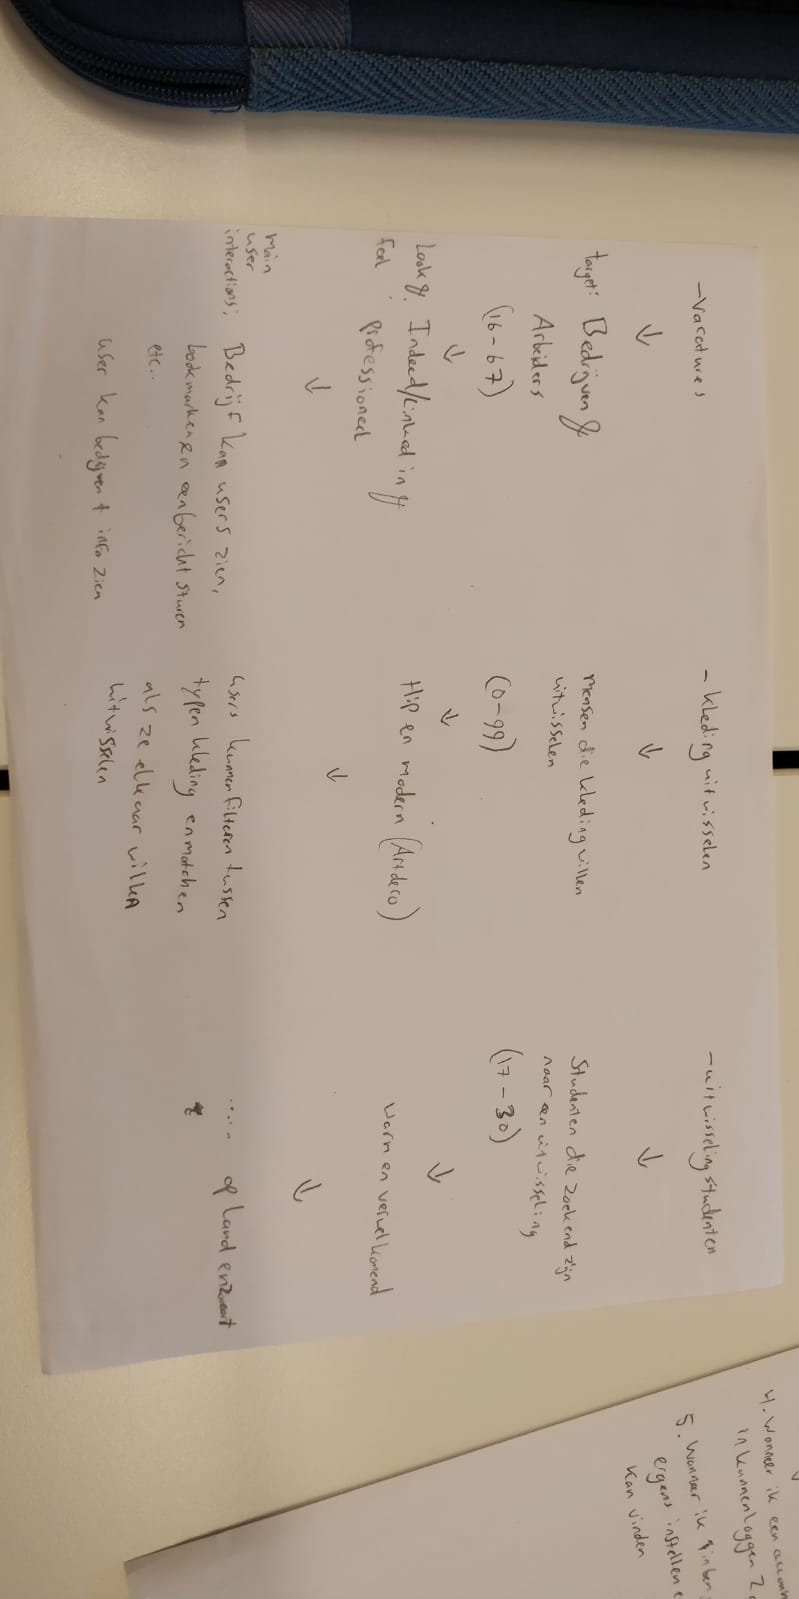 -Vacatures
target: Bedrijven &
Arbeiders
(16-67)
Look &
feel
Indeed/Linked in &
professioneel
main
user
interactions:
Bedrijf kan users zien,
bookmarken en een bericht sturen
etc..
user kan bedrijven + info zien
- kleding uitwisselen
mensen die kleding willen
uitwisselen
(0-99)
Hip en modern (Artdeco)
users kunnen filteren tussen
typen kleding en matchen
als ze elkaar willen
uitwisselen
-uitwisseling studenten
Studenten die zoekend zijn
naar een uitwisseling
(17-30)
warm en verwelkomend
..... op land
4. Wanneer ik een
in kunnen loggen
5. Wanneer ik
ergens instellen
kan vinden